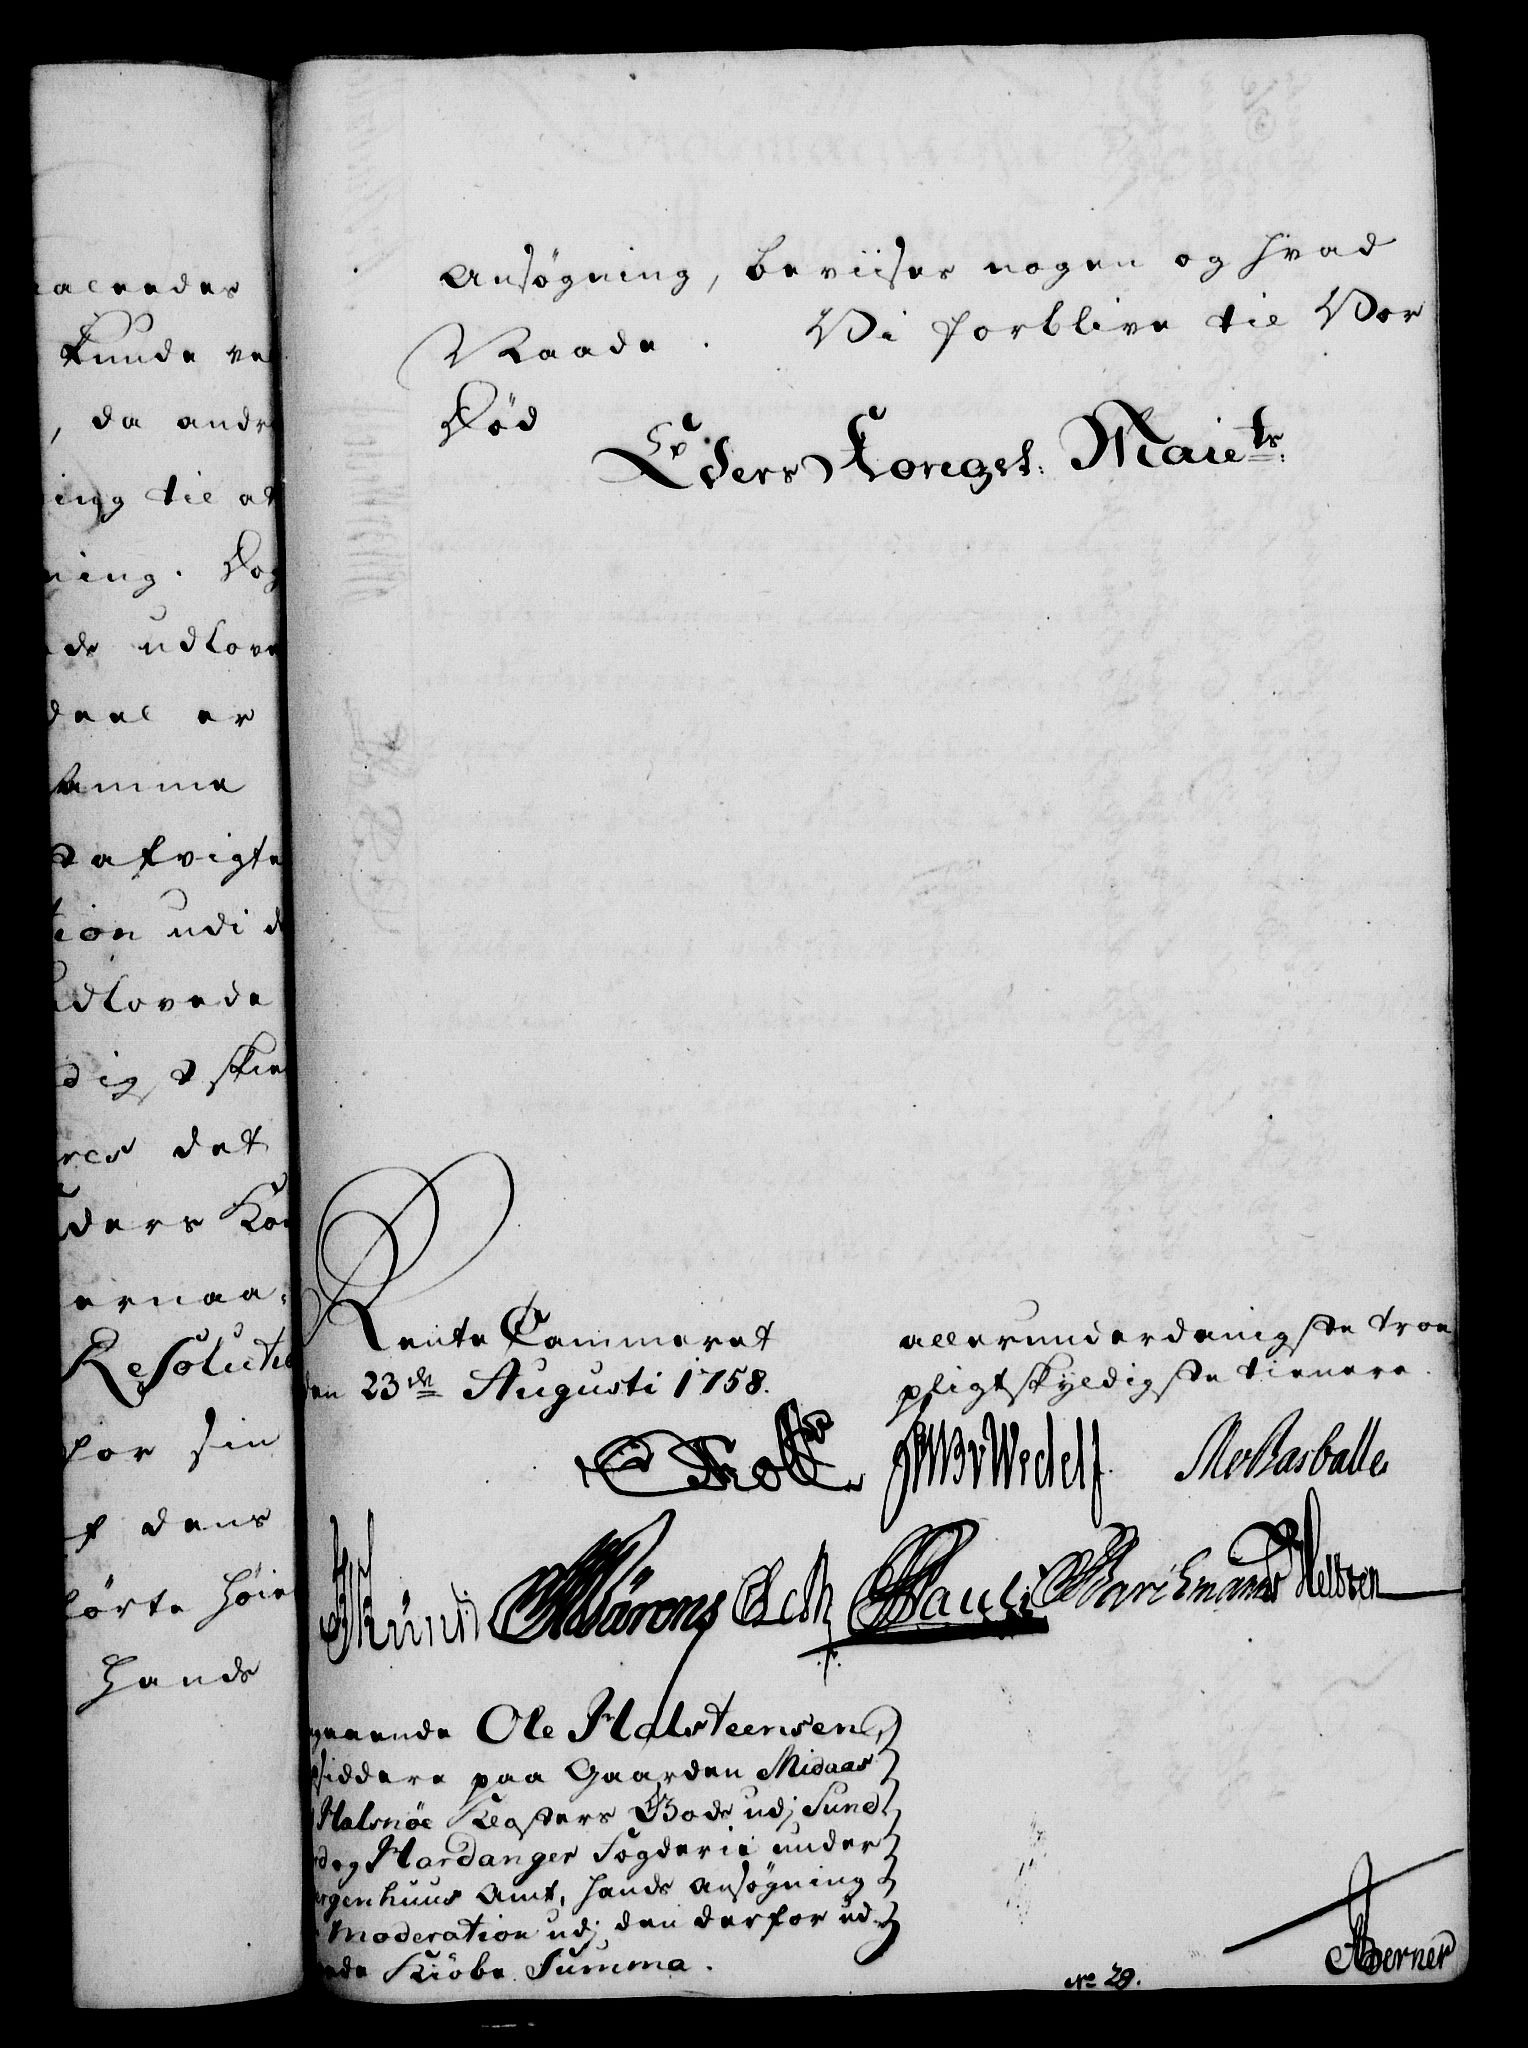 aleedes
kunde ve
, da andr
ing til at
ning. Dog
de udlove
deel er
samme
t afvigte
tion udi d
udlovede
digst skie
res det
Eders Kon
ernaa=
Resolutio
for sin
f dens
förte Höie
Hands
Ansøgning, beviises nogen og hvad
Naade. Vi forblive til Vor
Død
Eders Kongel: Maiets:
Rente Cammeret
den 23de Augusti 1758.
allerunderdanigste troe
pligtskyldigste tienere.
Holk
Wedell
Basballe
Pauli
Barchmann
Nelssen
grende Ole Halsteensen
siddere paa Gaarden Midaas
Halsnöe Closters Gods udj Sund
og Hardanger Fogderie under
rgenhuus Amt, hands Ansøgning
Moderation udj den derfor ud-
ede Kiöbe Summa.
No 29.
Berner